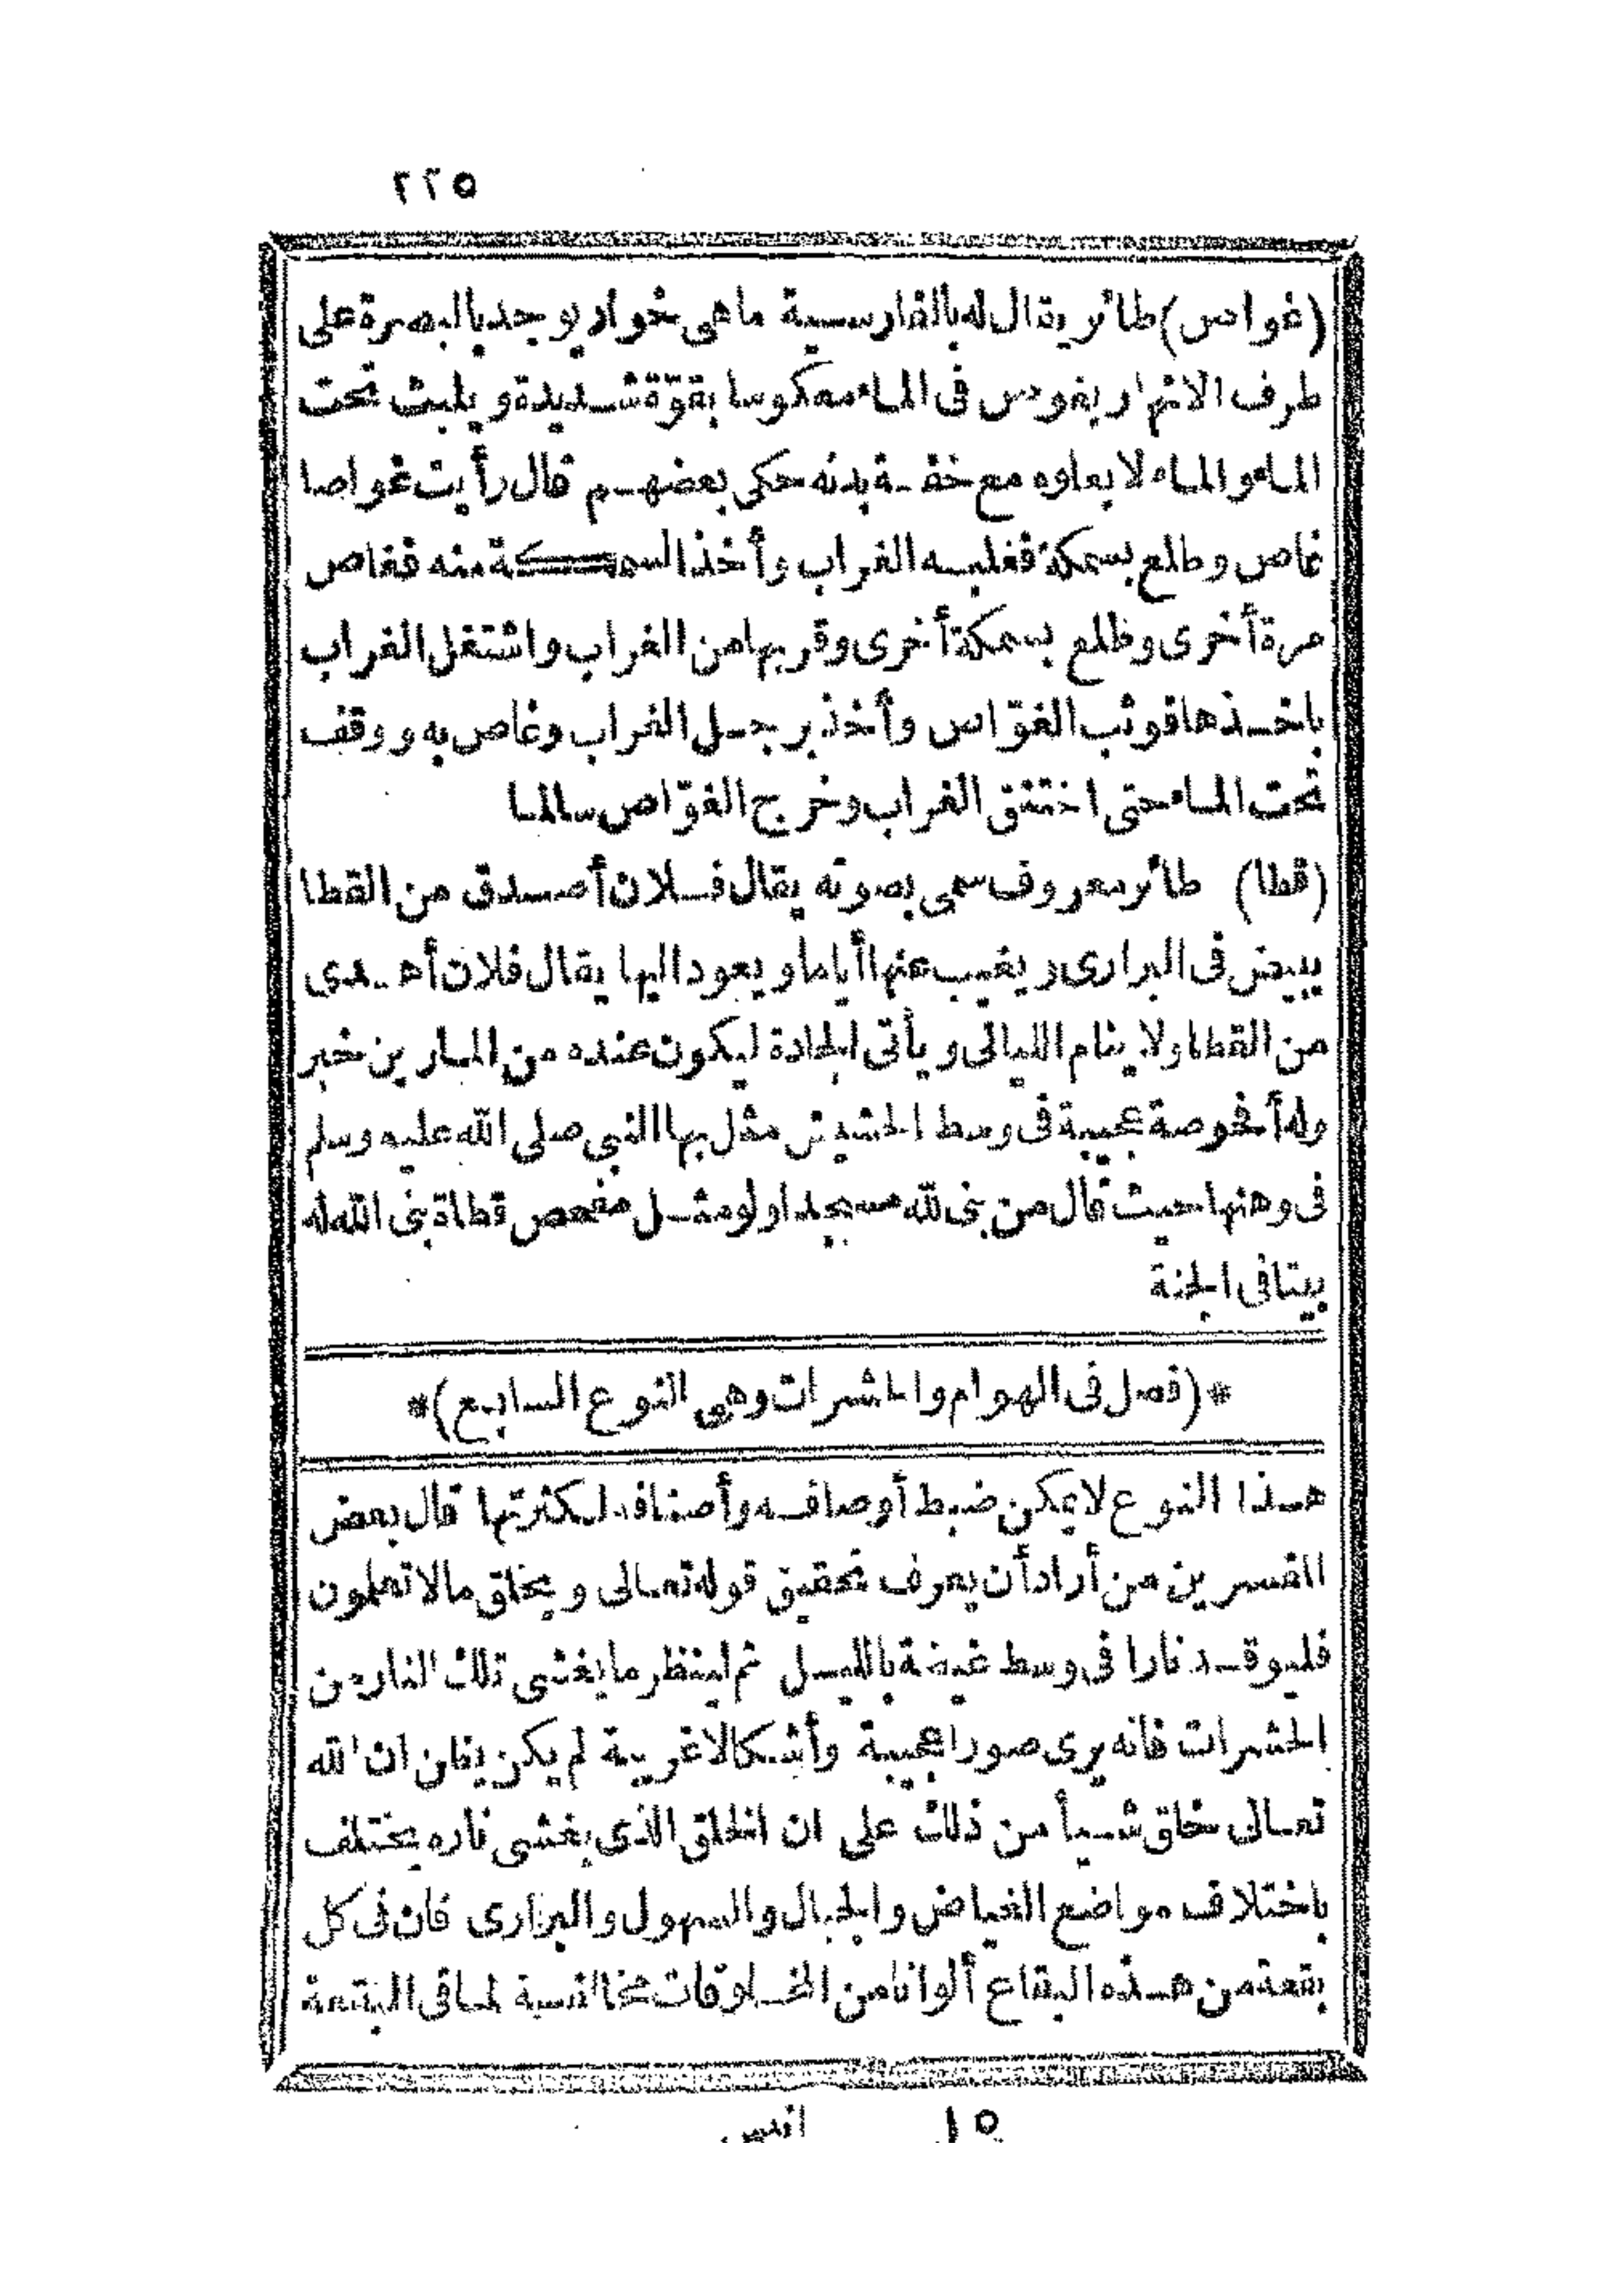 ٢٢٥
(غواص) طائر يقال له بالفارسية ماهى خوار يوجد بالبصرة على
طرف الانهار يغوص فى الماء معكوسا بقوّة شديدة و يلبث تحت
الماء والماء لا يعلوه مع خفة بدنه حكى بعضهم قال رأيت غواصا
غاص وطلع بسمكة فغلبه الغراب وأخذ السمكة منه فغاص
مرة أخرى وطلع بسمكة أخرى وقربها من الغراب واشتغل الغراب
باخذها فوثب الغوّاص وأخذ برجل الغراب وغاص به ووقف
تحت الماء حتى اختنق الغراب وخرج الغوّاص سالما
(قطا) طائر معروف سمى بصوته يقال فلان أصدق من القطا
يبيض فى البرارى ويغيب عنها أياما ويعود اليها يقال فلان أهدى
من القطا ولا ينام الليالى ويأتى الجادة ليكون عنده من المارين خبر
وله أفحوصة عجيبة فى وسط الحشيش مثل بها النبى صلى الله عليه وسلم
فى وهنها حيث قال من بنى لله مسجدا ولو مثل مفحص قطاة بنى الله له
بيتا فى الجنة
*(فصل فى الهوام والحشرات وهى النوع السابع)*
هذا النوع لا يمكن ضبط أوصافه وأصنافه لكثرتها قال بعض
المفسرين من أراد أن يعرف تحقيق قوله تعالى ويخلق مالا تعلمون
فليوقد نارا فى وسط غيضة بالليل ثم لينظر ما يغشى تلك النار من
الحشرات فانه يرى صورا عجيبة وأشكالا غريبة لم يكن يظن ان الله
تعالى خلق شيأ من ذلك على ان الخلق الذى يغشى ناره يختلف
باختلاف مواضع الغياض والجبال والسهول والبرارى فان فى كل
بقعة من هذه البقاع ألوانا من المخلوقات مخالفة لما فى البقعة
١٥ انيس